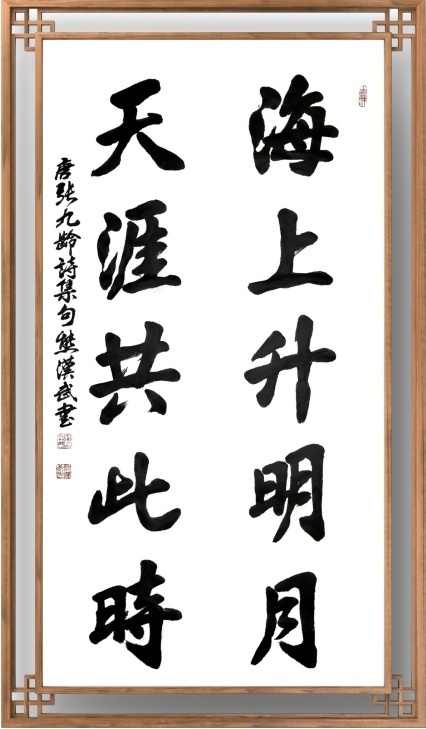 海上升明月
天涯共此時
唐张九龄詩集句熊漢武書